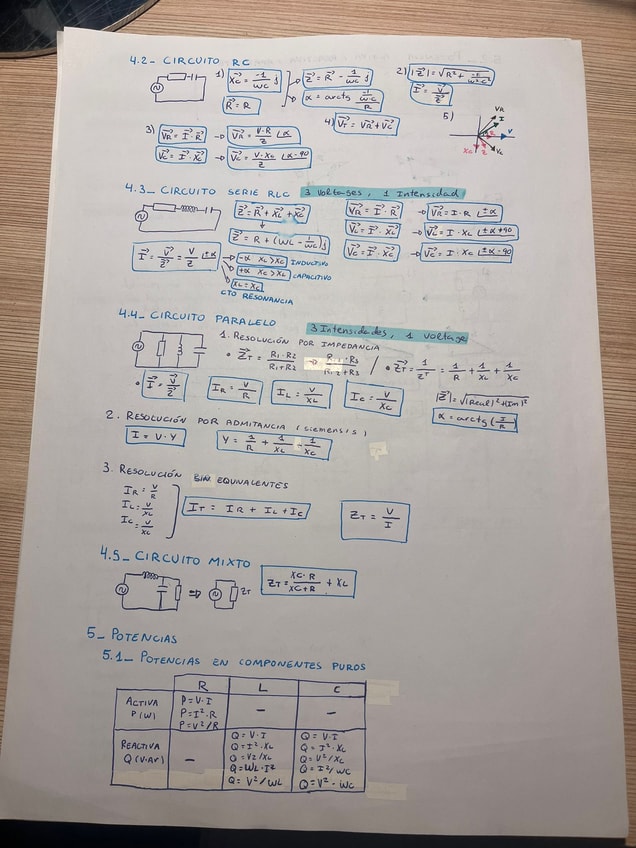 4.2_ CIRCUITO RC
1) Xc = -1/wc j → Z = R - 1/wc j
R = R → α = arctg (-1/w·c)/R
2) |Z| = √R² + -1/w²·c²
I = V/Z
3) VR = I·R → VR = V·R/Z ∠α
Vc = I·Xc → Vc = V·Xc/Z ∠α-90
4) VT = VR + Vc
5) VR
I
V
R
Xc Z
Vc
4.3_ CIRCUITO SERIE RLC 3 Voltages, 1 Intensidad
Z = R + XL + Xc
Z = R + (WL - 1/wc)j
VR = I·R → VR = I·R ∠±α
VL = I·XL → VL = I·XL ∠±α+90
Vc = I·Xc → Vc = I·Xc ∠±α-90
I = V/Z = V/Z ∠±α
→ -α XL>Xc INDUCTIVO
→ +α Xc>XL CAPACITIVO
→ XL=Xc
CTO RESONANCIA
4.4_ CIRCUITO PARALELO 3 Intensidades, 1 Voltage
1. RESOLUCIÓN POR IMPEDANCIA
• ZT = R1·R2/R1+R2 → R1·2·R3/R1-2+R3 / • ZT = 1/ZT = 1/R + 1/XL + 1/Xc
• I = V/Z
IR = V/R
IL = V/XL
Ic = V/Xc
|Z| = √(Real)²+(Im)²
α = arctg (I/R)
2. RESOLUCIÓN POR ADMITANCIA (siemensis)
I = V·Y
Y = 1/R + 1/XL - 1/Xc
3. RESOLUCIÓN SIN EQUIVALENTES
IR = V/R
IL = V/XL
Ic = V/XL
IT = IR + IL + Ic
ZT = V/I
4.5_ CIRCUITO MIXTO
⇒ ZT
ZT = Xc·R/Xc+R + XL
5_ POTENCIAS
5.1_ POTENCIAS EN COMPONENTES PUROS
R L C
ACTIVA P(W)
P=V·I
P=I²·R
P=V²/R
– –
REACTIVA Q(V·Ar)
–
Q=V·I
Q=I²·XL
Q=V2/XL
Q=WL·I²
Q=V²/WL
Q=V·I
Q=I²·XL
Q=V²/XL
Q=I²/WC
Q=V²-WC